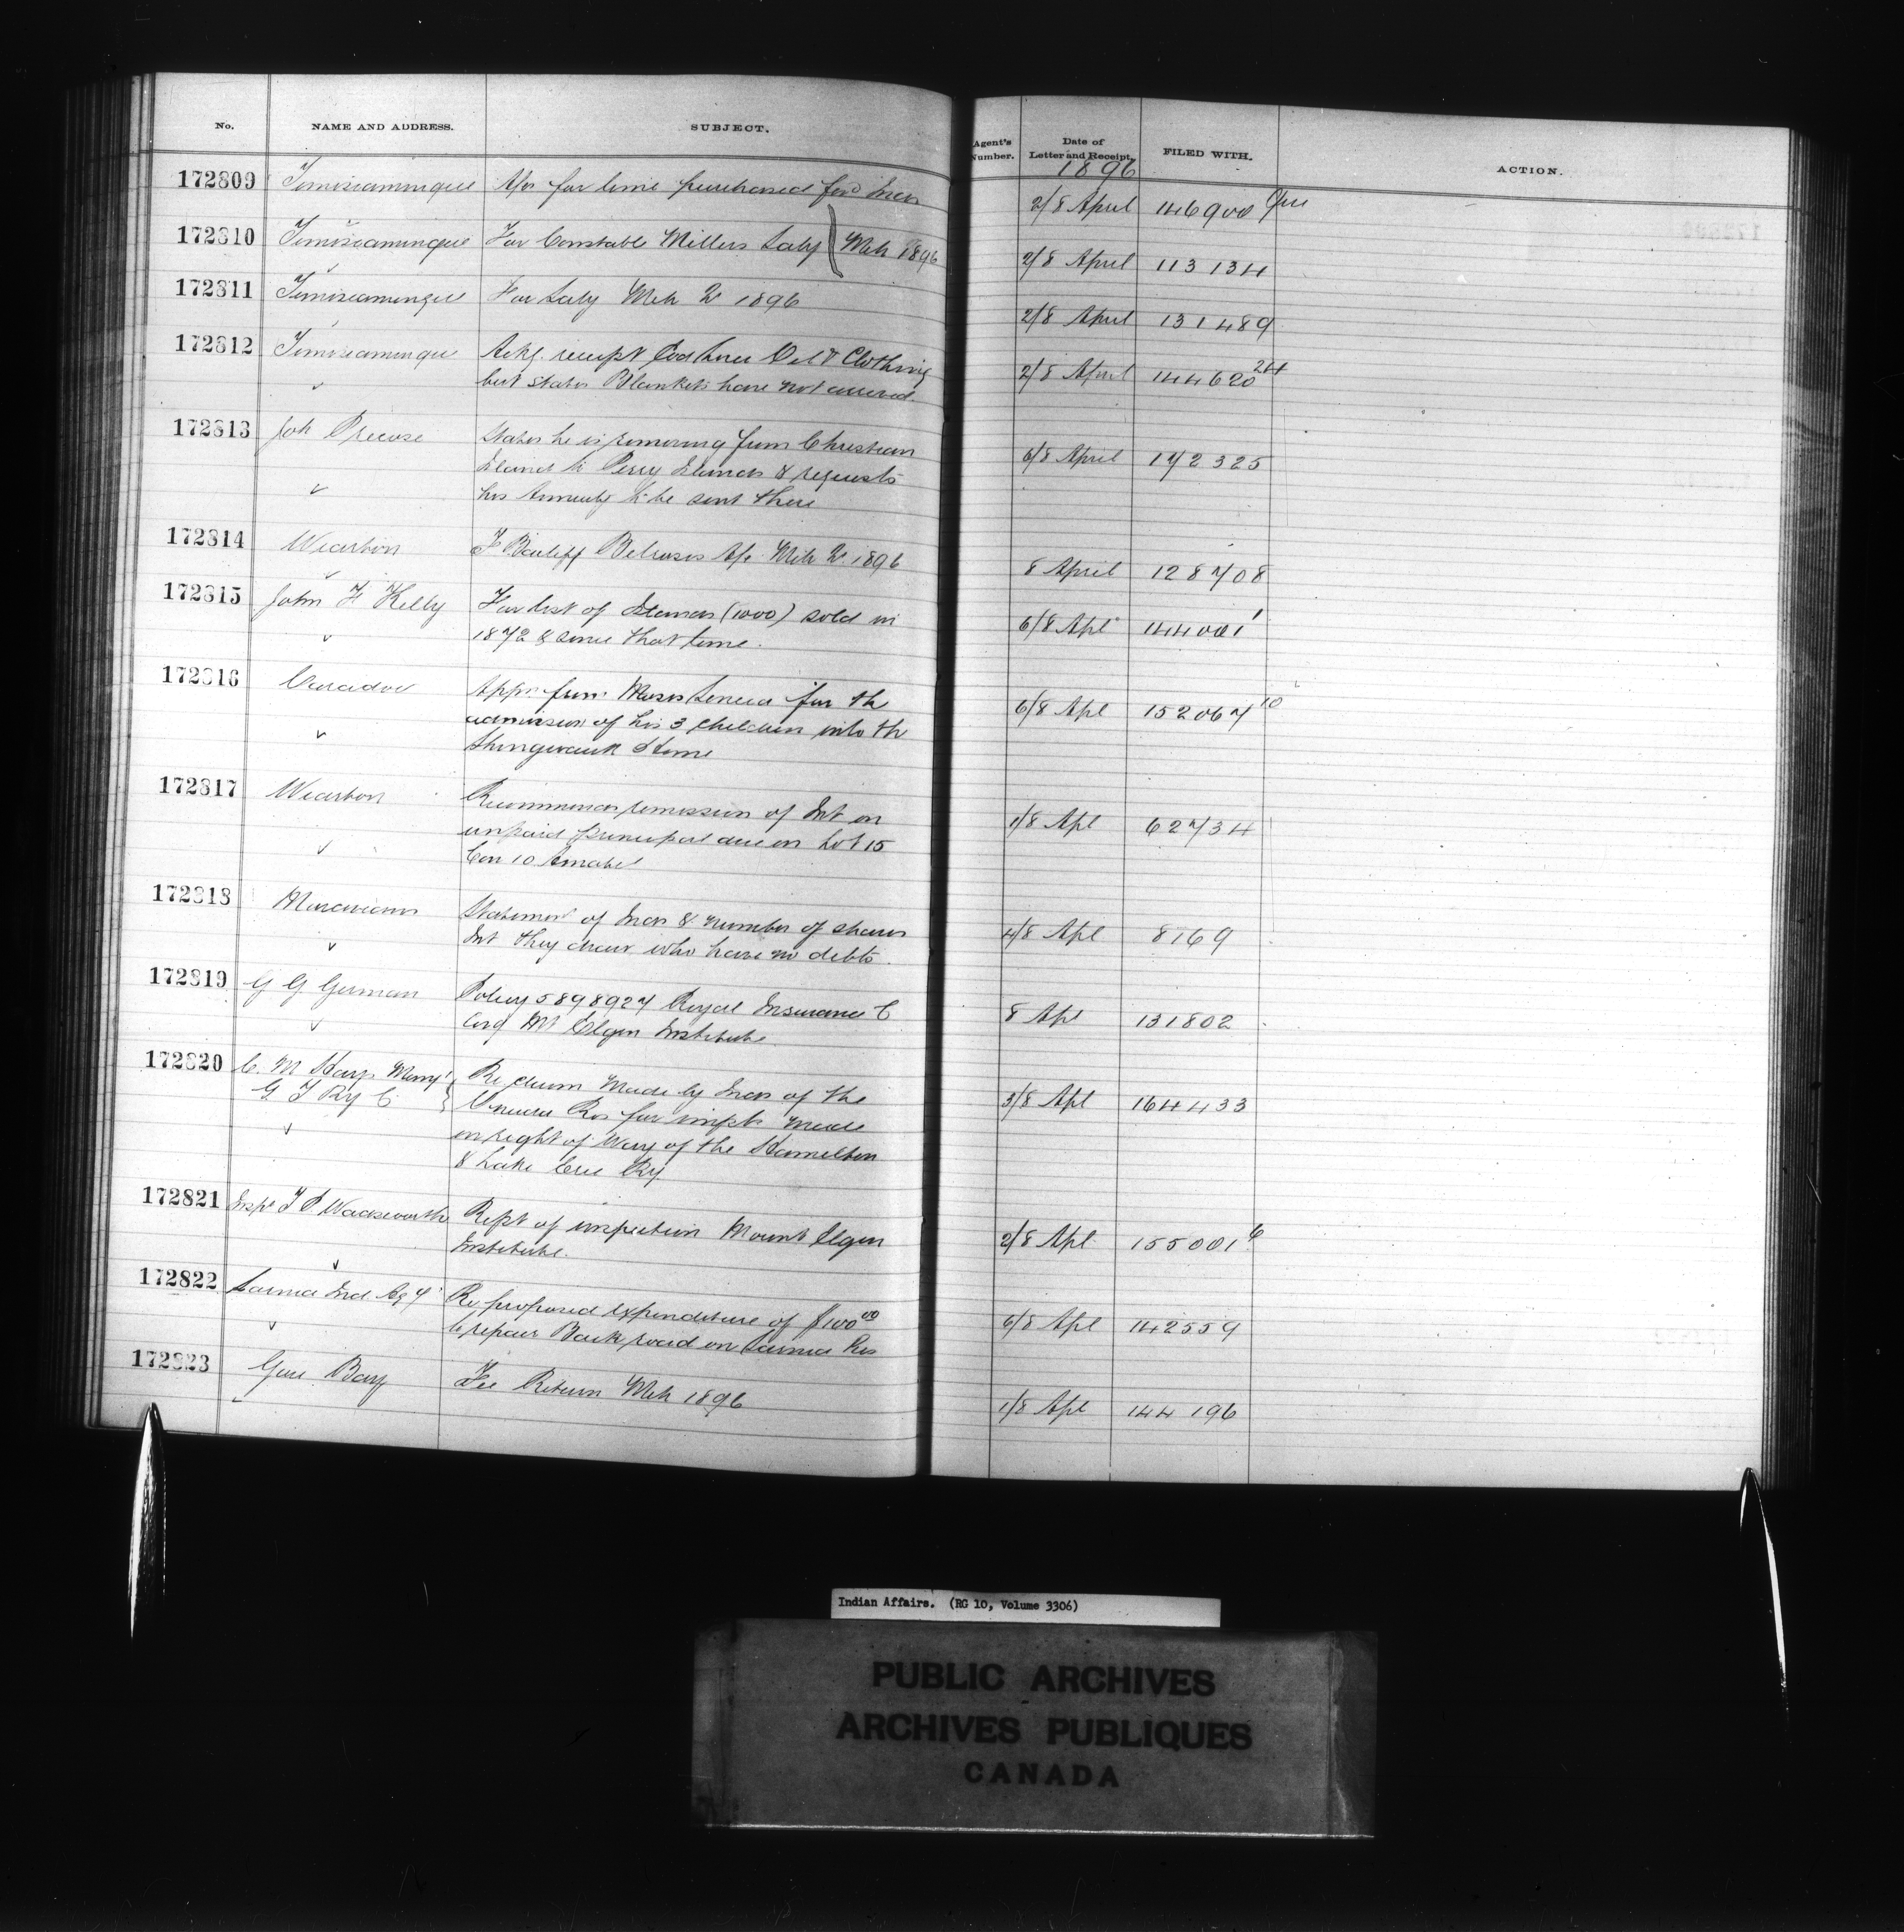 No. NAME AND ADDRESS. SUBJECT. Agent's Number. Date of Letter and Receipt. FILED WITH. ACTION.
1896
172809 Temiscamingue for lime purchased for Inds 2/8 April 146900
172810 Temiscamingue For Constable Millers Saly Mch 1896 2/8 April 113134
172811 Temiscamingue For Saly Mch Qr 1896 2/8 April 131489
172812 Temiscamingue Ackg receipt Cod Lines & Clothing 2/8 April 144620 24
but states Blankets have not arrived.
172813 States he is removing from Christian 6/8 April 172325
Island to Parry Island & requests
his Annuity to be sent there
172814 Wiarton Bailiff Belroses a/c Mch Qr 1896 8 April 128708
172815 John F Kelly For list of Islands (1000) sold in 6/8 Apl 144001 1
1872 & since that time.
172816 Caradoc Appn from Moses Seneca for the 6/8 Apl 152067 10
admission of his 3 children into the
Shingwauk Home
172817 Wiarton Recommends remission of Int on 1/8 Apl 62734
unpaid principal due on Lot 15
Con 10 Amabel
172818 Moravians Statement of Inds & number of shares 4/8 Apl 8169
Int they draw who have no debts.
172819 G G German Policy 5898927 Royal Insurance C 8 Apl 131802
Covg Mt Elgin Institute
172820 C. M Hays Mangr Re claim made by Inds of the 3/8 Apl 164433
G T Ry C Oneida Res for impts made
on right of Way of the Hamilton
& Lake Erie Ry.
172821 Inspr T P Wadsworth Rept of inspection Mount Elgin 2/8 Apl 155001 6
Institute.
172822 Sarnia Ind Agy Re proposed expenditure of $100 00 6/8 Apl 142559
to repair Back road on Sarnia Res
172823 Gore Bay Fee Return Mch 1896 1/8 Apl 144196
Indian Affairs. (RG 10, Volume 3306)
PUBLIC ARCHIVES
ARCHIVES PUBLIQUES
CANADA